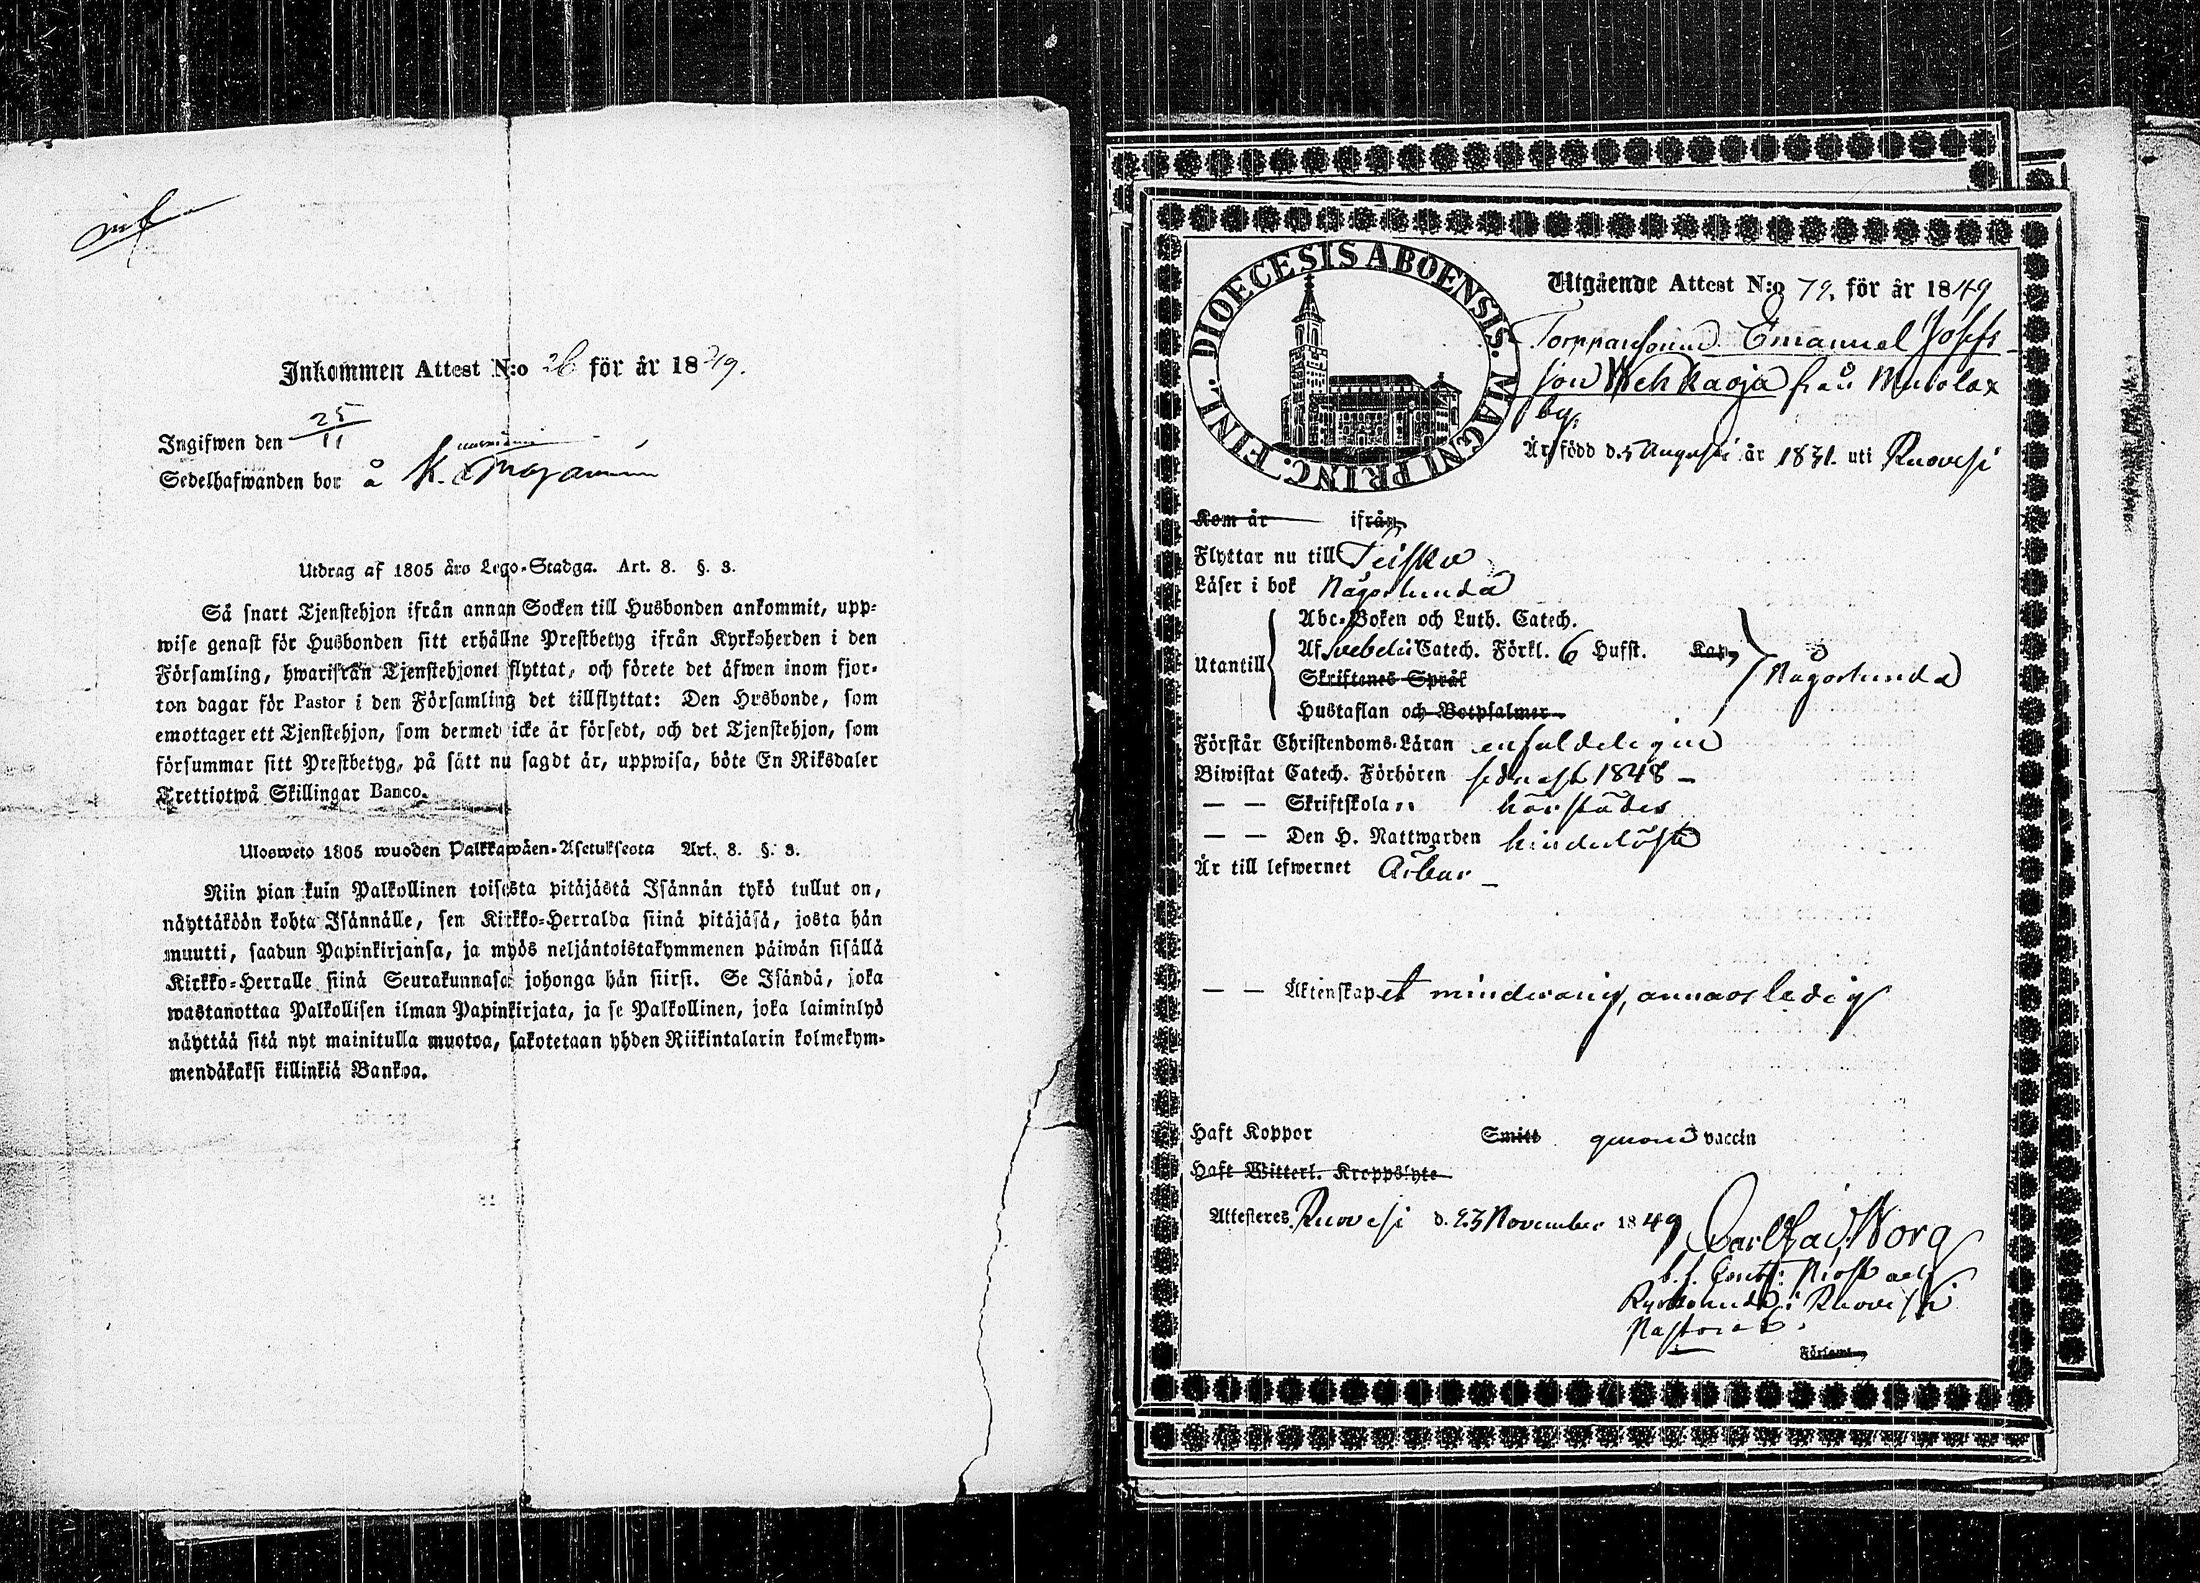 Inkommen Attest N:o 26 för år 1849.
Ingifwen den 25/11
Sedelhafwanden bor å K.
Utdrag af 1805 års Lego-Stadga. Art. 8. §. 3.
Så snart Tjenstehjon ifrån annan Socken till Husbonden ankommit, upp-
wise genast för Husbonden sitt erhållne Prestbetyg ifrån Kyrkoherden i den
Församling, hwarifrån Tjenstehjonet flyttat, och förete det äfwen inom fjor-
ton dagar för Pastor i den Församling det tillflyttat: Den Husbonde, som
emottager ett Tjenstehjon, som dermed icke är försedt, och det Tjenstehjon, som
försummar sitt Prestbetyg, på sätt nu sagdt är, uppwisa, böte En Riksdaler
Trettiotwå Skillingar Banco.
Ulosweto 1805 wuoden Palkkawäen-Asetuksesta Art. 8. §. 3.
Niin pian kuin Palkollinen toisesta pitäjästä Isännän tykö tullut on,
näyttäköön kohta Isännälle, sen Kirkko-Herralda siinä pitäjäsä, josta hän
muutti, saadun Papinkirjansa, ja myös neljäntoistakymmenen päiwän sisällä
Kirkko-Herralle siinä Seurakunnasa johonga hän siirsi. Se Isändä, joka
wastanottaa Palkollisen ilman Papinkirjata, ja se Palkollinen, joka laiminlyö
näyttää sitä nyt mainitulla muotoa, sakotetaan yhden Riikintalarin kolmekym-
mendäkaksi killinkiä Bankoa.
DIOECESIS ABOENSIS. MAGNI PRINC. FINL.
Utgående Attest N:o 79. för år 1849
Torpparesonen Emanuel Josefs
son Wehkaoja från Muolax
by.
Är född d. 5 Augusti år 1831. uti Ruovesi
Kom år ifrån
Flyttar nu till Teisko
Läser i bok Någorlunda
Utantill
Abc-Boken och Luth. Catech.
Af Svebelii Catech. Förkl. 6 Hufst. Kap.
Skriftenes Språk
Hustaflan och Botpsalmer
Någorlunda
Förstår Christendoms-Läran enfaldeligen
Biwistat Catech. Förhören sednast 1848 –
— — Skriftskolan härstädes
— — Den H. Nattwarden hinderlöst
Är till lefwernet ärbar –
— — Äktenskapet minderårig, annars ledig
Haft Koppor Smitt genom vaccin
Haft Witterl. Kroppslyte
Attesteres Ruovesi d. 23 November 1849
Norg
Prost och
Kyrkoherde i Ruovesi
Pastorat.
Församl.